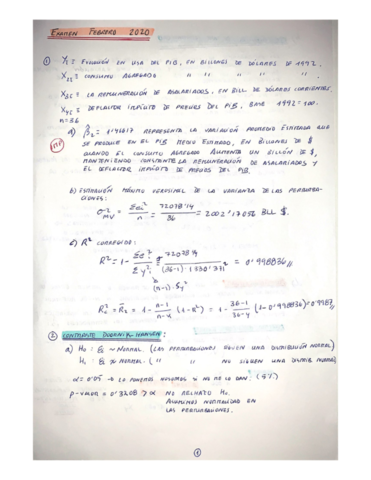 EXAMEN FEBRERO 2020
① Y₁ = EVOLUCIÓN EN USA DEL PIB, EN BILLONES DE DÓLARES DE 1992.
X₂ₜ = CONSUMO AGREGADO " " " " "
X₃ₜ = LA REMUNERACIÓN DE ASALARIADOS, EN BILL. DE DÓLARES CORRIENTES.
X₄ₜ = DEFLACTOR IMPLÍCITO DE PRECIOS DEL PIB, BASE 1992 = 100.
n = 36
a) β̂₂ = REPRESENTA LA VARIACIÓN PROMEDIO ESTIMADA QUE
SE PRODUCE EN EL PIB ESTIMADO, EN BILLONES DE $
CUANDO EL CONSUMO AGREGADO AUMENTA UN BILLÓN DE $,
MANTENIENDO CONSTANTE LA REMUNERACIÓN DE ASALARIADOS Y
EL DEFLACTOR IMPLÍCITO DE PRECIOS DEL PIB.
b) ESTIMACIÓN MÁXIMO VEROSIMIL DE LA VARIANZA DE LAS PERTURBA-
CIONES:
σ²MV = Σeᵢ² / n = 72078'14 / 36 = 2002'17056 BLL $.
c) R² CORREGIDO:
R² = 1 - Σe² / Σy² = 1 - 72078'14 / (36-1) = 0'998836
(n-1)·Sy²
Rc² = R̄² = 1 - n-1 / n-k (1-R²) = 1 - 36-1 / 36-4 (1-0'998836) = 0'9987
② CONTRASTE DOORNIK-HANSEN:
a) H₀: εₜ ~ NORMAL. (LAS PERTURBACIONES SIGUEN UNA DISTRIBUCIÓN NORMAL)
H₁: εₜ ≁ NORMAL (" " NO SIGUEN UNA DISTRIB NORMAL)
α = 0'05 → LO PONEMOS NOSOTROS SI NO NOS LO DAN
p-valor = 0'3208 > α NO RECHAZO H₀.
ASUMIMOS NORMALIDAD EN
LAS PERTURBACIONES.
①